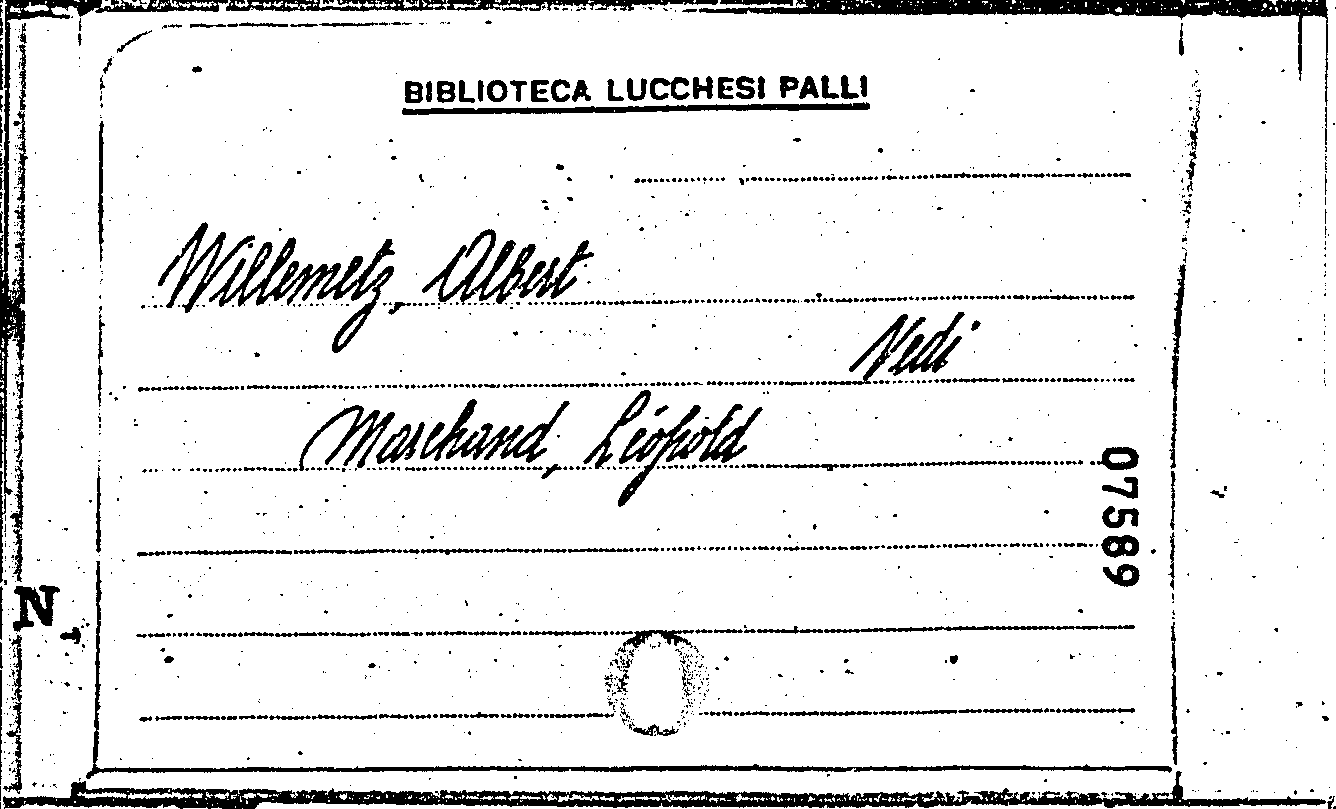 BIBLIOTECA LUCCHESI PALLI
Willemetz, Albert
Vedi
Marchand, Léopold
07589
N